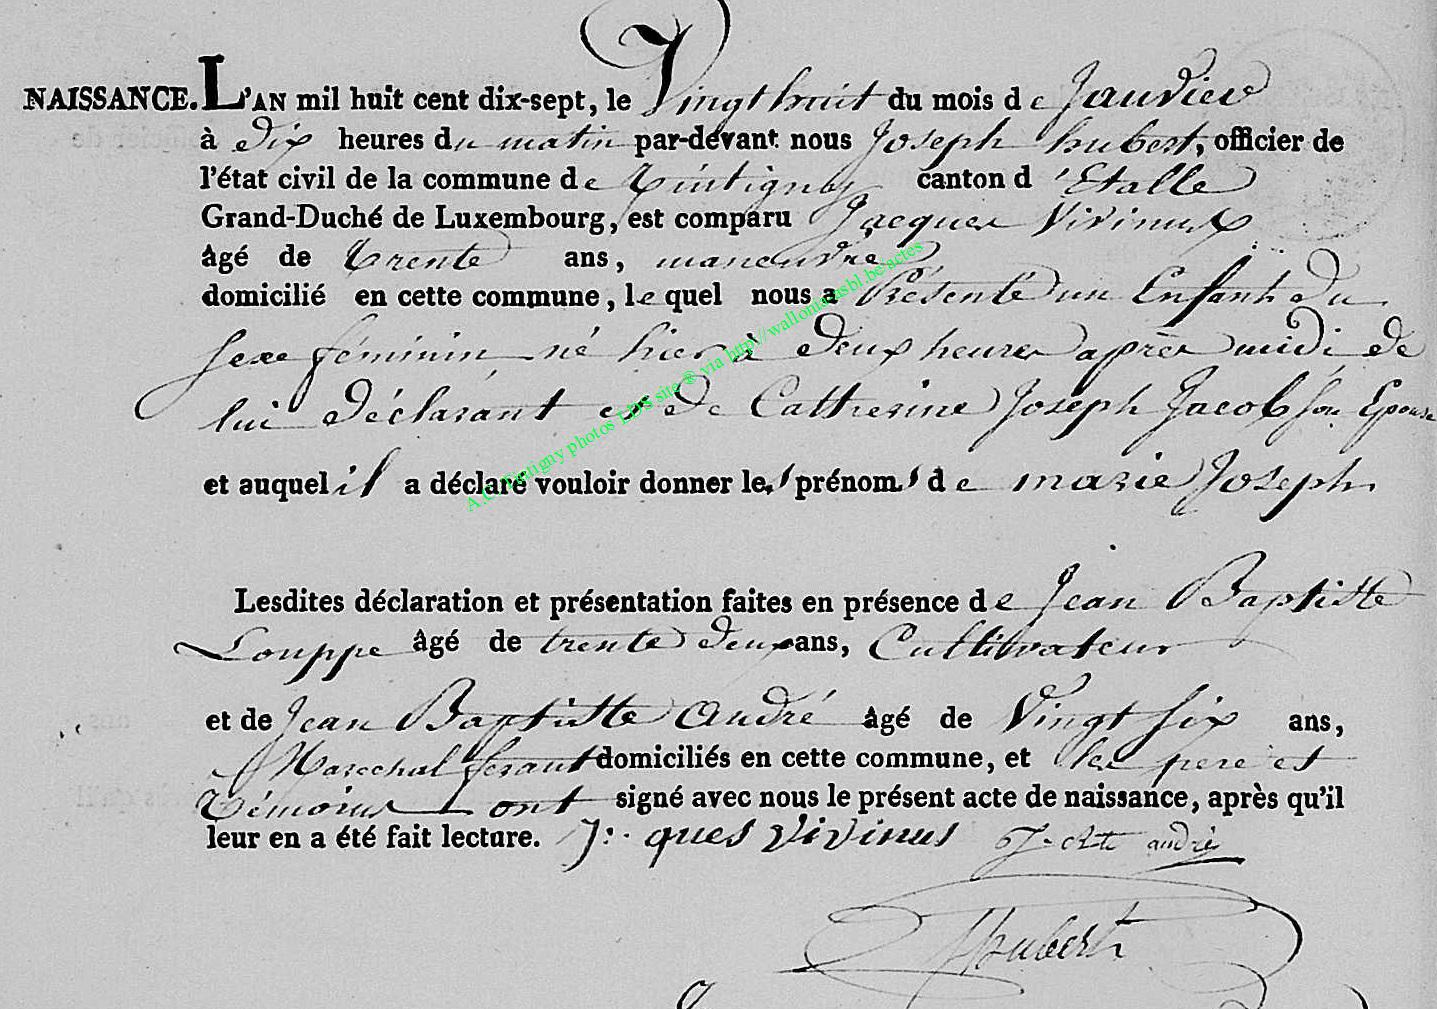 NAISSANCE. L'AN mil huit cent dix-sept, le Vingt huit du mois de Janvier
à Dix heures du matin par-devant nous Joseph hubert, officier de
l'état civil de la commune de Tintigny canton d'Etalle
Grand-Duché de Luxembourg, est comparu Jacques Vivinus
âgé de trente ans, manœuvre
domicilié en cette commune, lequel nous a Présenté un Enfant du
sexe féminin né hier à deux heures après midi de
lui déclarant et de Catherine Joseph Jacob son Epouse
et auquel il a déclaré vouloir donner les prénoms de marie Joseph
Lesdites déclaration et présentation faites en présence de Jean Baptiste
Louppe âgé de trente deux ans, Cultivateur
et de Jean Baptiste André âgé de Vingt six ans,
Marechal ferant domiciliés en cette commune, et les pere et
témoins ont signé avec nous le présent acte de naissance, après qu'il
leur en a été fait lecture. J: ques vivinus J. Bte andré
Hubert
A.C. Tintigny photos LDS site ® via http://wallonia.asbl.be/actes